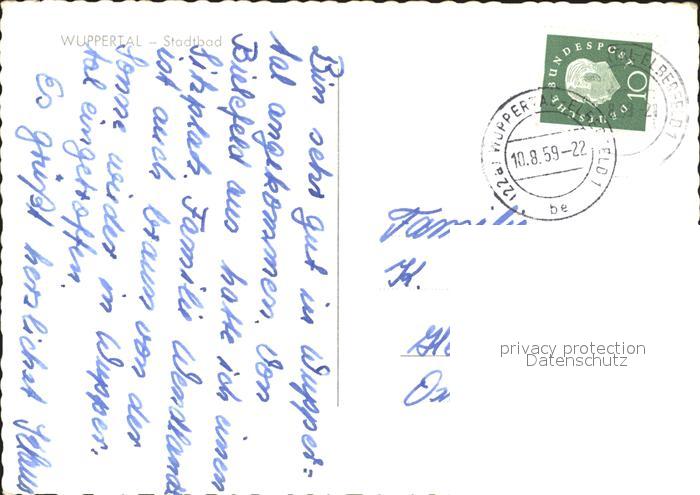 WUPPERTAL – Stadtbad
Bin sehr gut in Wupper=
tal angekommen. Von
Bielefeld aus hatte ich einen
Sitzplatz. Familie Wendland
ist auch braun von der
Sonne wieder in Wupper.
tal eingetroffen.
Es grüßt herzlichst
DEUTSCHE BUNDESPOST
10
(22a) WUPPERTAL-ELBERFELD 1
10.8.59-22
be
Familie
K.
privacy protection
Datenschutz